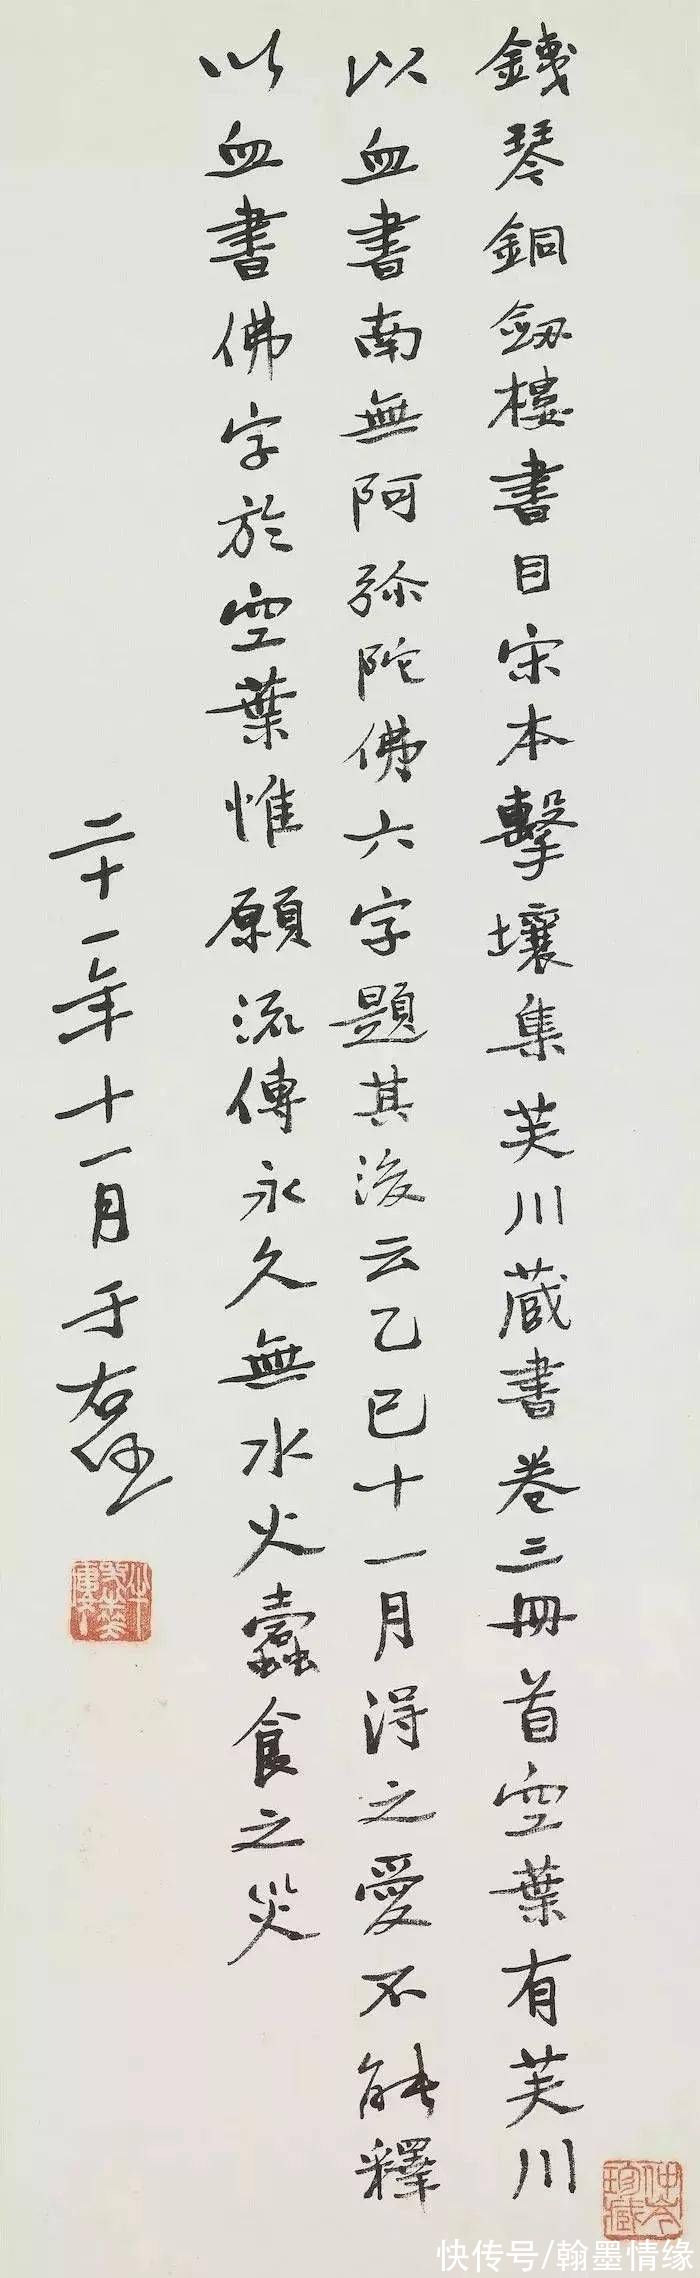 鐵琴銅劒樓書目宋本擊壤集芙川藏書卷三冊首空葉有芙川
以血書南無阿弥陀佛六字題其後云乙巳十一月得之愛不能釋
以血書佛字於空葉惟願流傳永久無水火蠹食之災
二十一年十一月于右任
仲岑珍藏
快传号/翰墨情缘